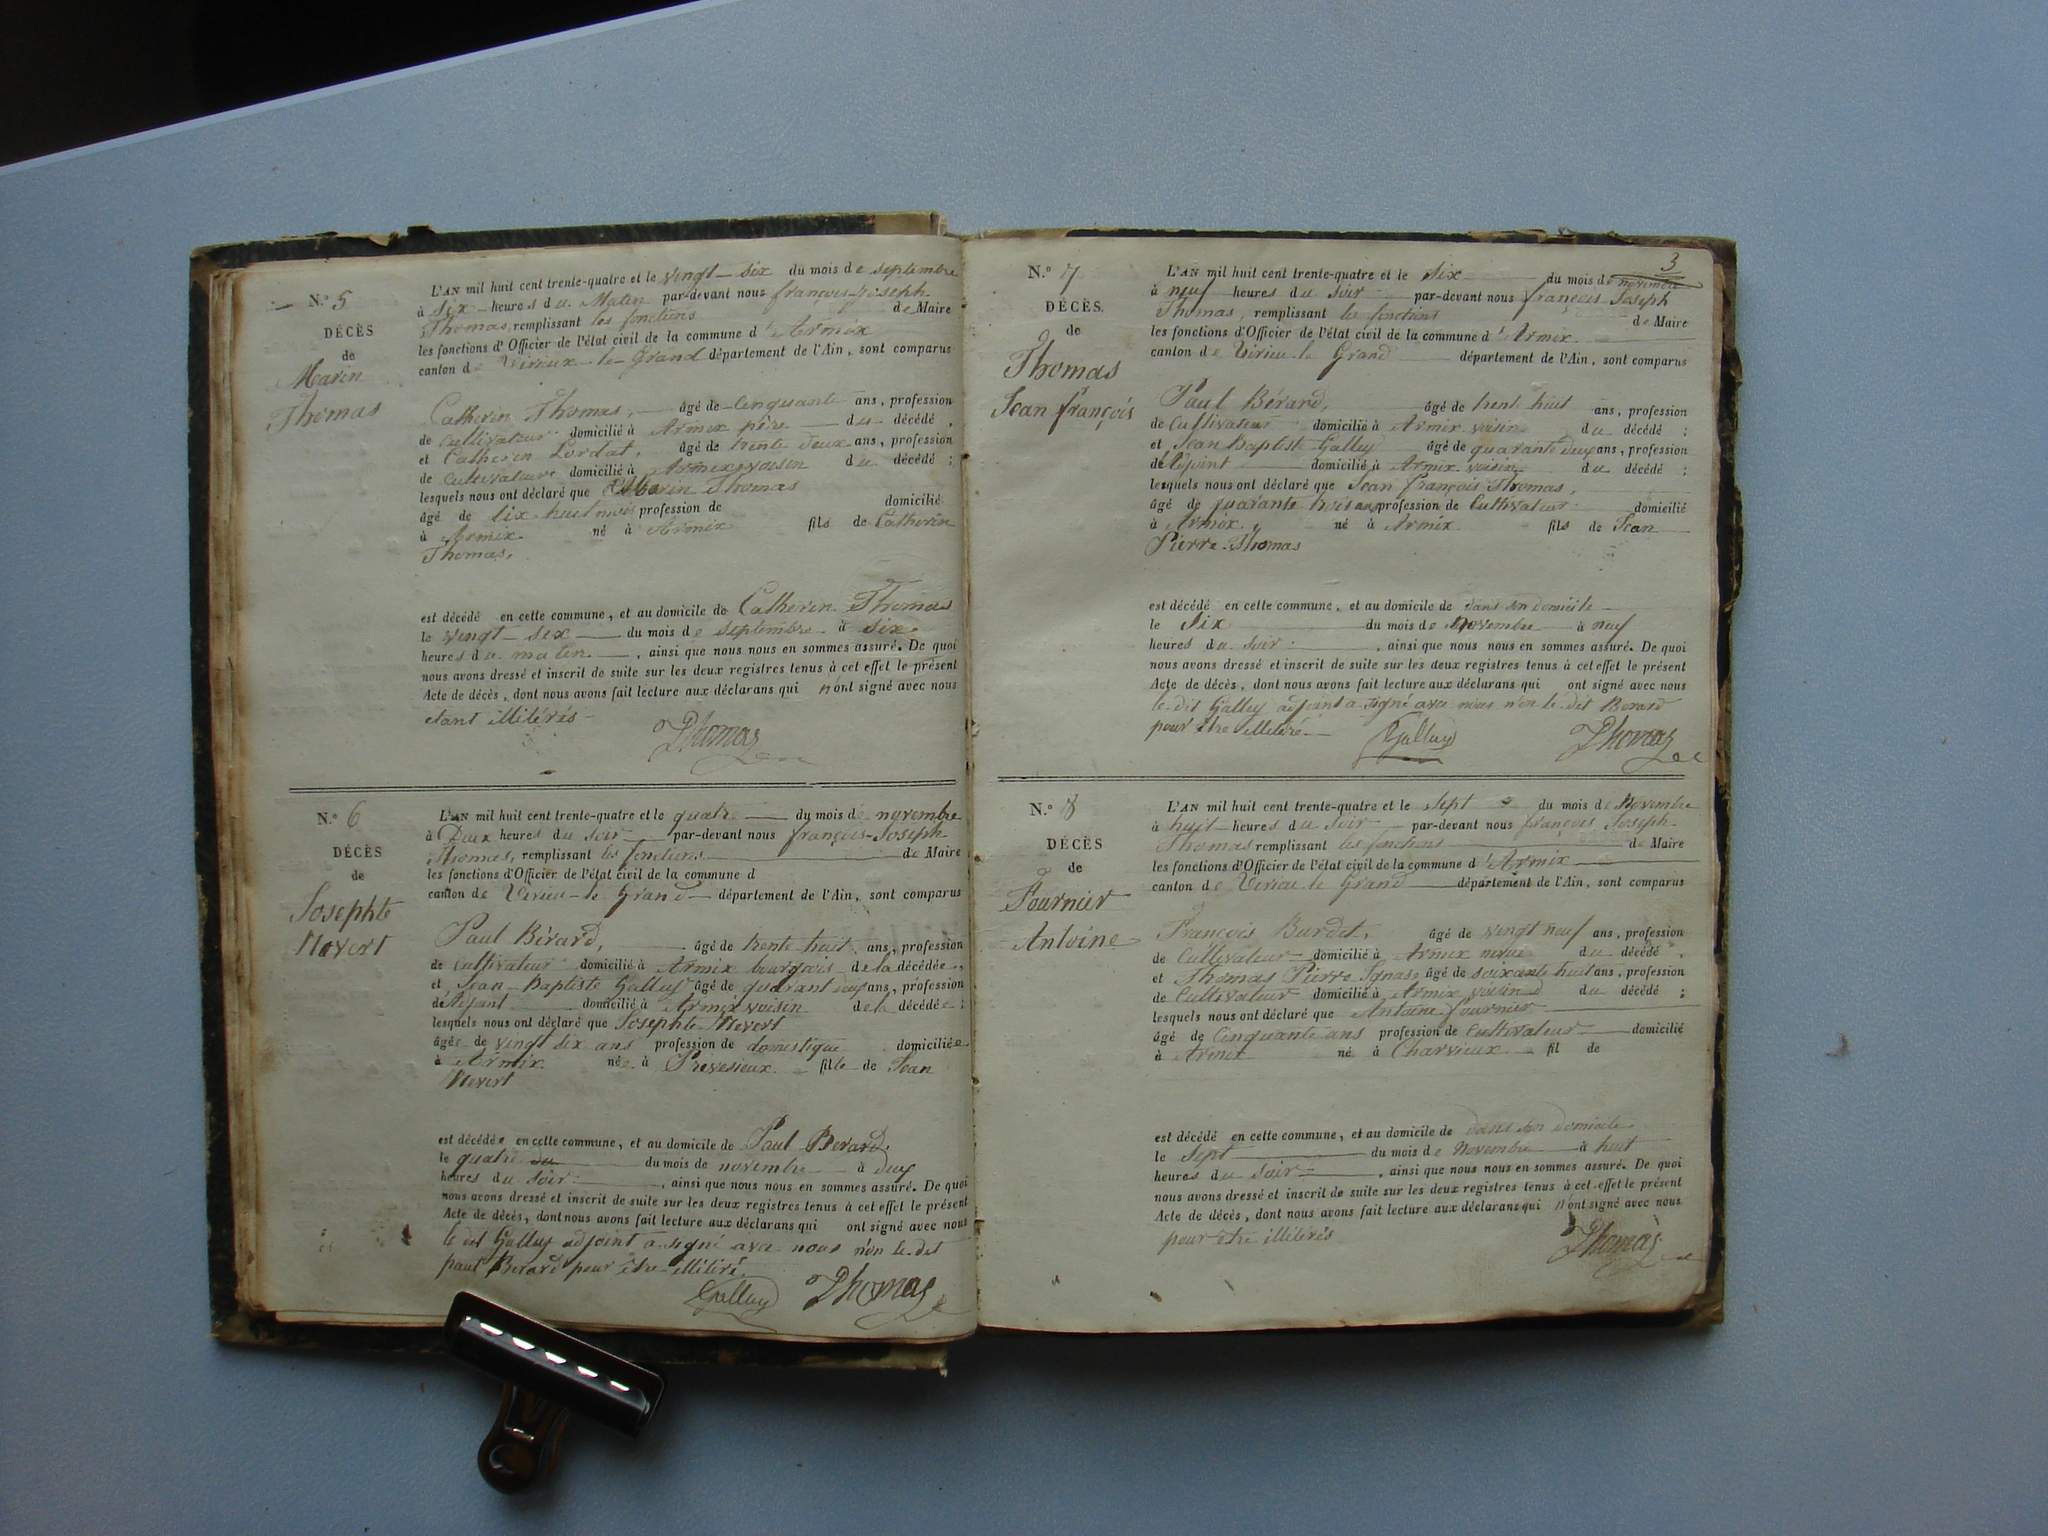 N.° 5
DÉCÈS
de
Marin
Thomas
L'AN mil huit cent trente-quatre et le vingt-six du mois de septembre
à six heures du Matin par-devant nous françois-joseph
Thomas, remplissant les fonctions de Maire
les fonctions d'Officier de l'état civil de la commune d'Armix
canton de Virieux-le-Grand département de l'Ain, sont comparus
Catherin Thomas, âgé de cinquante ans, profession
de cultivateur domicilié à Armix père du décédé,
et Catherin Lordat, âgé de trente deux ans, profession
de cultivateur domicilié à Armix voisin du décédé ;
lesquels nous ont déclaré que Marin Thomas
âgé de dix huit mois profession de domicilié
à Armix né à Armix fils de Catherin
Thomas,
est décédé en cette commune, et au domicile de Catherin Thomas
le vingt-six du mois de septembre à six
heures du matin, ainsi que nous nous en sommes assuré. De quoi
nous avons dressé et inscrit de suite sur les deux registres tenus à cet effet le présent
Acte de décès, dont nous avons fait lecture aux déclarans qui n'ont signé avec nous
étant illitérés
Thomas
N.° 6
DÉCÈS
de
Josephte
Nevert
L'AN mil huit cent trente-quatre et le quatre du mois de novembre
à Deux heures du soir par-devant nous françois-Joseph
Thomas, remplissant les fonctions de Maire
les fonctions d'Officier de l'état civil de la commune d
canton de Virieu-le Grand département de l'Ain, sont comparus
Paul Bérard, âgé de trente huit ans, profession
de cultivateur domicilié à Armix bourgois de la décédée,
et Jean-Baptiste Galley âgé de quarant deux ans, profession
de Adjoint domicilié à Armix voisin de la décédée ;
lesquels nous ont déclaré que Josephte Nevert
âgée de vingt six ans profession de domestique domiciliée
à Armix née à Prevesieux fille de Jean
Nevert
est décédée en cette commune, et au domicile de Paul Berard
le quatre du du mois de novembre à deux
heures du soir, ainsi que nous nous en sommes assuré. De quoi
nous avons dressé et inscrit de suite sur les deux registres tenus à cet effet le présent
Acte de décès, dont nous avons fait lecture aux déclarans qui ont signé avec nous
le dit Galley adjoint a signé avec nous non le dit
paul Berard pour être illitéré
Galley Thomas
3
N.° 7
DÉCÈS.
de
Thomas
Jean françois
L'AN mil huit cent trente-quatre et le Six du mois de novembre
à neuf heures du soir par-devant nous françois Joseph
Thomas, remplissant les fonctions de Maire
les fonctions d'Officier de l'état civil de la commune d'Armix
canton de Virieu le Grand département de l'Ain, sont comparus
Paul Bérard, âgé de trente huit ans, profession
de Cultivateur domicilié à Armix voisin du décédé ;
et Jean Baptiste Galley âgé de quarante deux ans, profession
de Adjoint domicilié à Armix voisin du décédé ;
lesquels nous ont déclaré que Jean françois Thomas,
âgé de quarante huit ans profession de Cultivateur domicilié
à Armix né à Armix fils de Jean
Pierre Thomas
est décédé en cette commune, et au domicile de dans son domicile
le Six du mois de Novembre à neuf
heures du soir, ainsi que nous nous en sommes assuré. De quoi
nous avons dressé et inscrit de suite sur les deux registres tenus à cet effet le présent
Acte de décès, dont nous avons fait lecture aux déclarans qui ont signé avec nous
le dit Galley adjoint a signé avec nous non le dit Berard
pour être illitéré
Galley Thomas
N.° 8
DÉCÈS
de
Fournier
Antoine
L'AN mil huit cent trente-quatre et le sept du mois de Novembre
à huit heures du soir par-devant nous françois Joseph
Thomas remplissant les fonctions de Maire
les fonctions d'Officier de l'état civil de la commune d'Armix
canton de Virieu le Grand département de l'Ain, sont comparus
François Burdet, âgé de vingt neuf ans, profession
de Cultivateur domicilié à Armix neveu du décédé,
et Thomas Pierre Ignase âgé de soixante huit ans, profession
de Cultivateur domicilié à Armix voisin du décédé ;
lesquels nous ont déclaré que Antoine fournier
âgé de Cinquante ans profession de cultivateur domicilié
à Armix né à Charvieux fil de
est décédé en cette commune, et au domicile de dans son domicile
le sept du mois de Novembre à huit
heures du soir, ainsi que nous nous en sommes assuré. De quoi
nous avons dressé et inscrit de suite sur les deux registres tenus à cet effet le présent
Acte de décès, dont nous avons fait lecture aux déclarans qui n'ont signé avec nous
pour être illitérés
Thomas